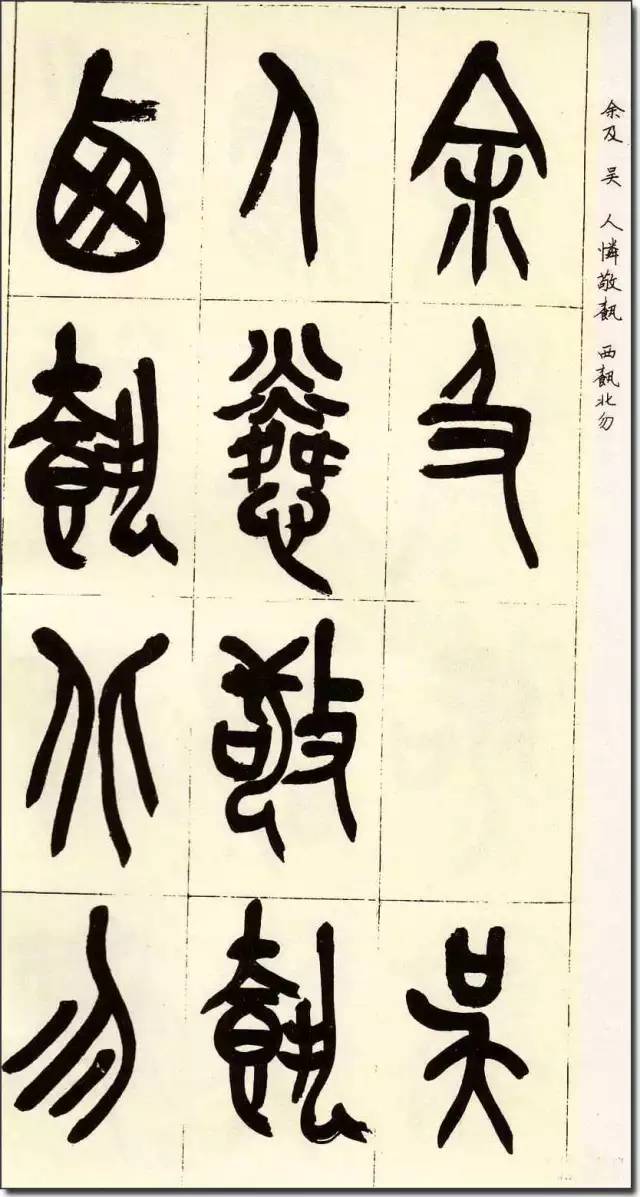 余及 吴 人憐敬 西 北勿
余及 吴
人憐敬
西 北勿